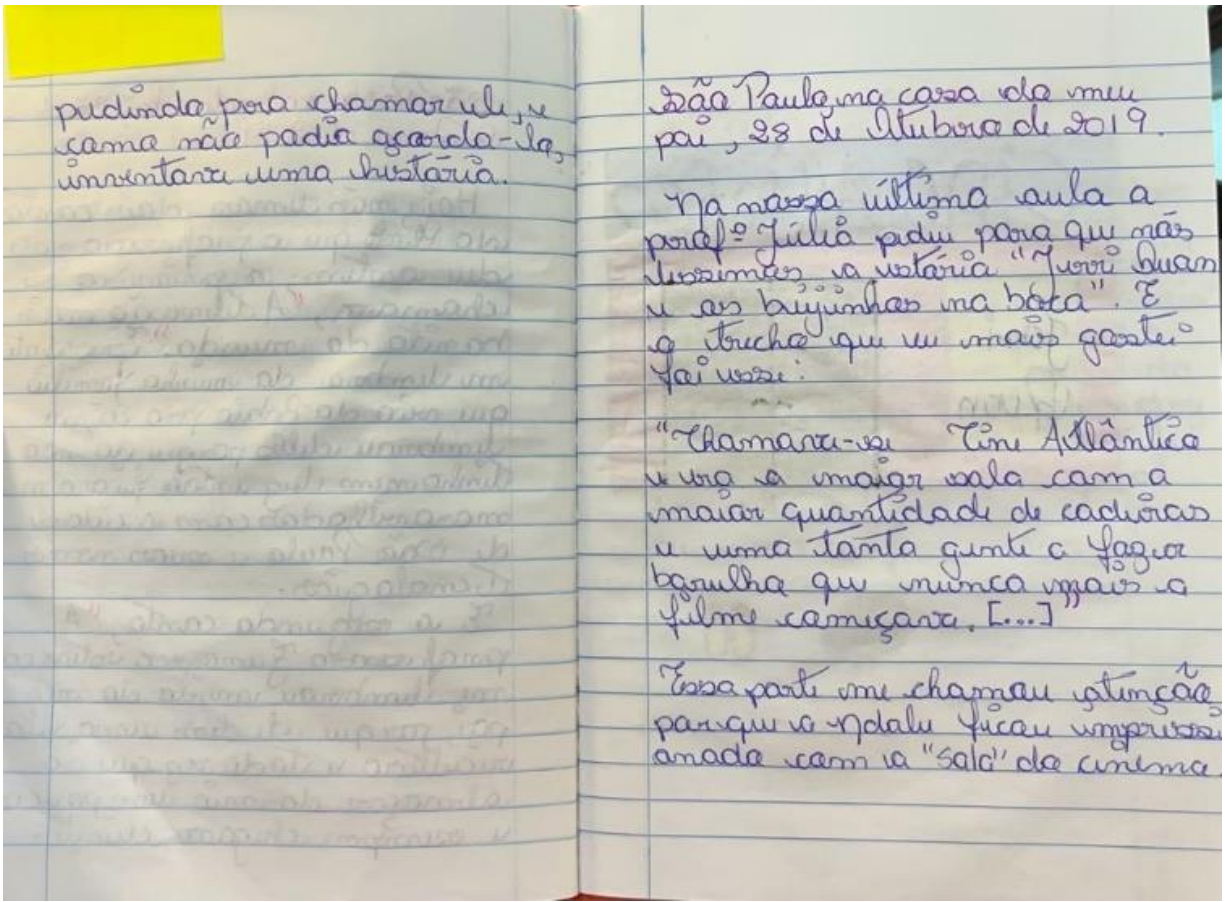 pedindo para chamar ele, e
como não podia acordá-lo,
inventava uma história.
São Paulo, na casa do meu
pai, 28 de Outubro de 2019.
Na nossa última aula a
profª Júlia pediu para que nós
lêssemos a estória "Jerri Quan
e os beijinhos na boca". E
o trecho que eu mais gostei
foi esse:
"Chamava-se Cine Atlântico
e era a maior sala com a
maior quantidade de cadeiras
e uma tanta gente a fazer
barulho que nunca mais o
filme começava. [...]"
Essa parte me chamou atenção
porque o Ndalu ficou impressi
onado com a "sala" do cinema